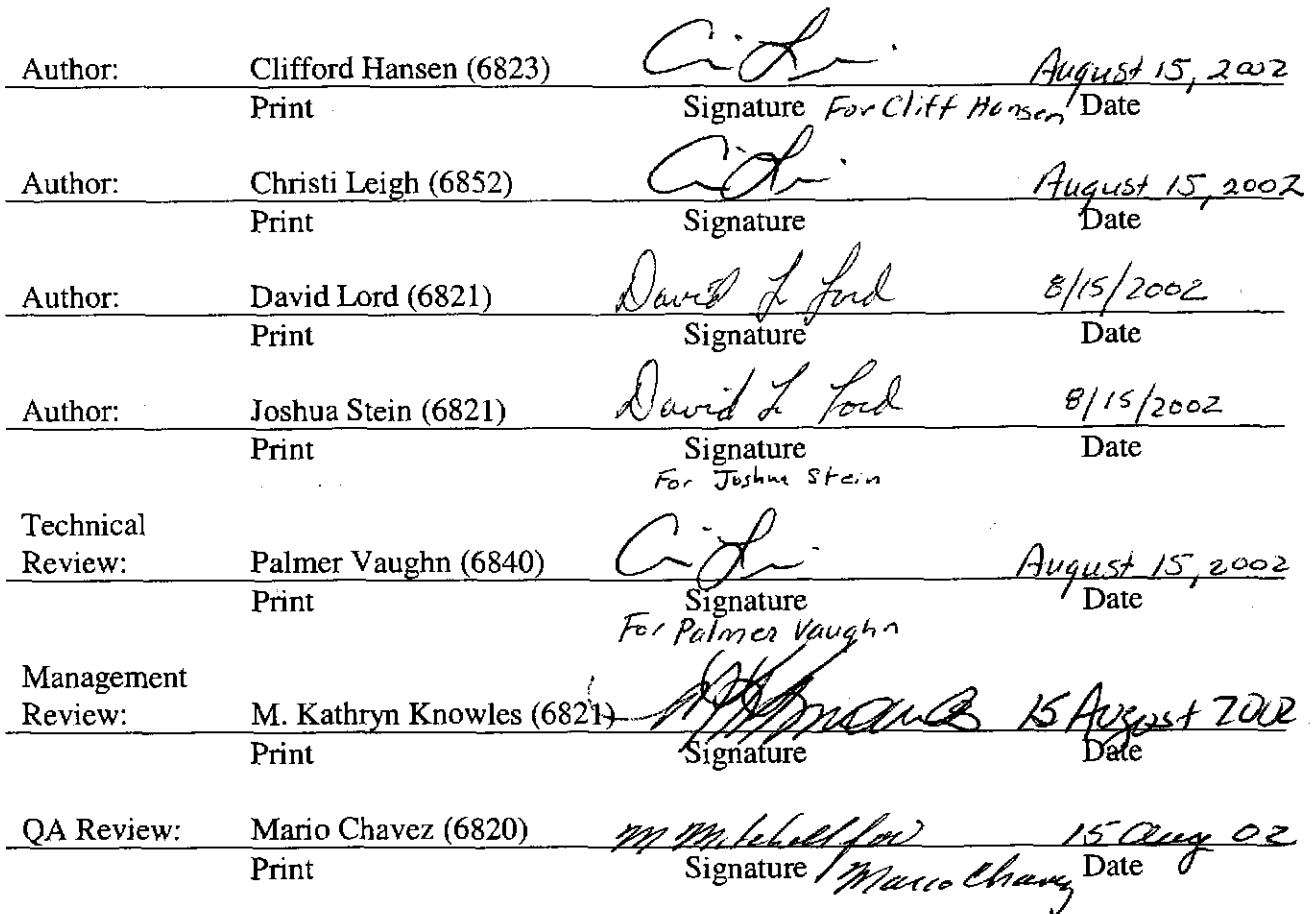 Author: Clifford Hansen (6823) August 15, 2002
Print Signature For Cliff Hansen Date
Author: Christi Leigh (6852) August 15, 2002
Print Signature Date
Author: David Lord (6821) David L Lord 8/15/2002
Print Signature Date
Author: Joshua Stein (6821) David L Lord 8/15/2002
Print Signature Date
For Joshua Stein
Technical
Review: Palmer Vaughn (6840) August 15, 2002
Print Signature Date
For Palmer Vaughn
Management
Review: M. Kathryn Knowles (6821) 15 August 2002
Print Signature Date
QA Review: Mario Chavez (6820) M Mitchell for 15 Aug 02
Print Signature Mario Chavez Date